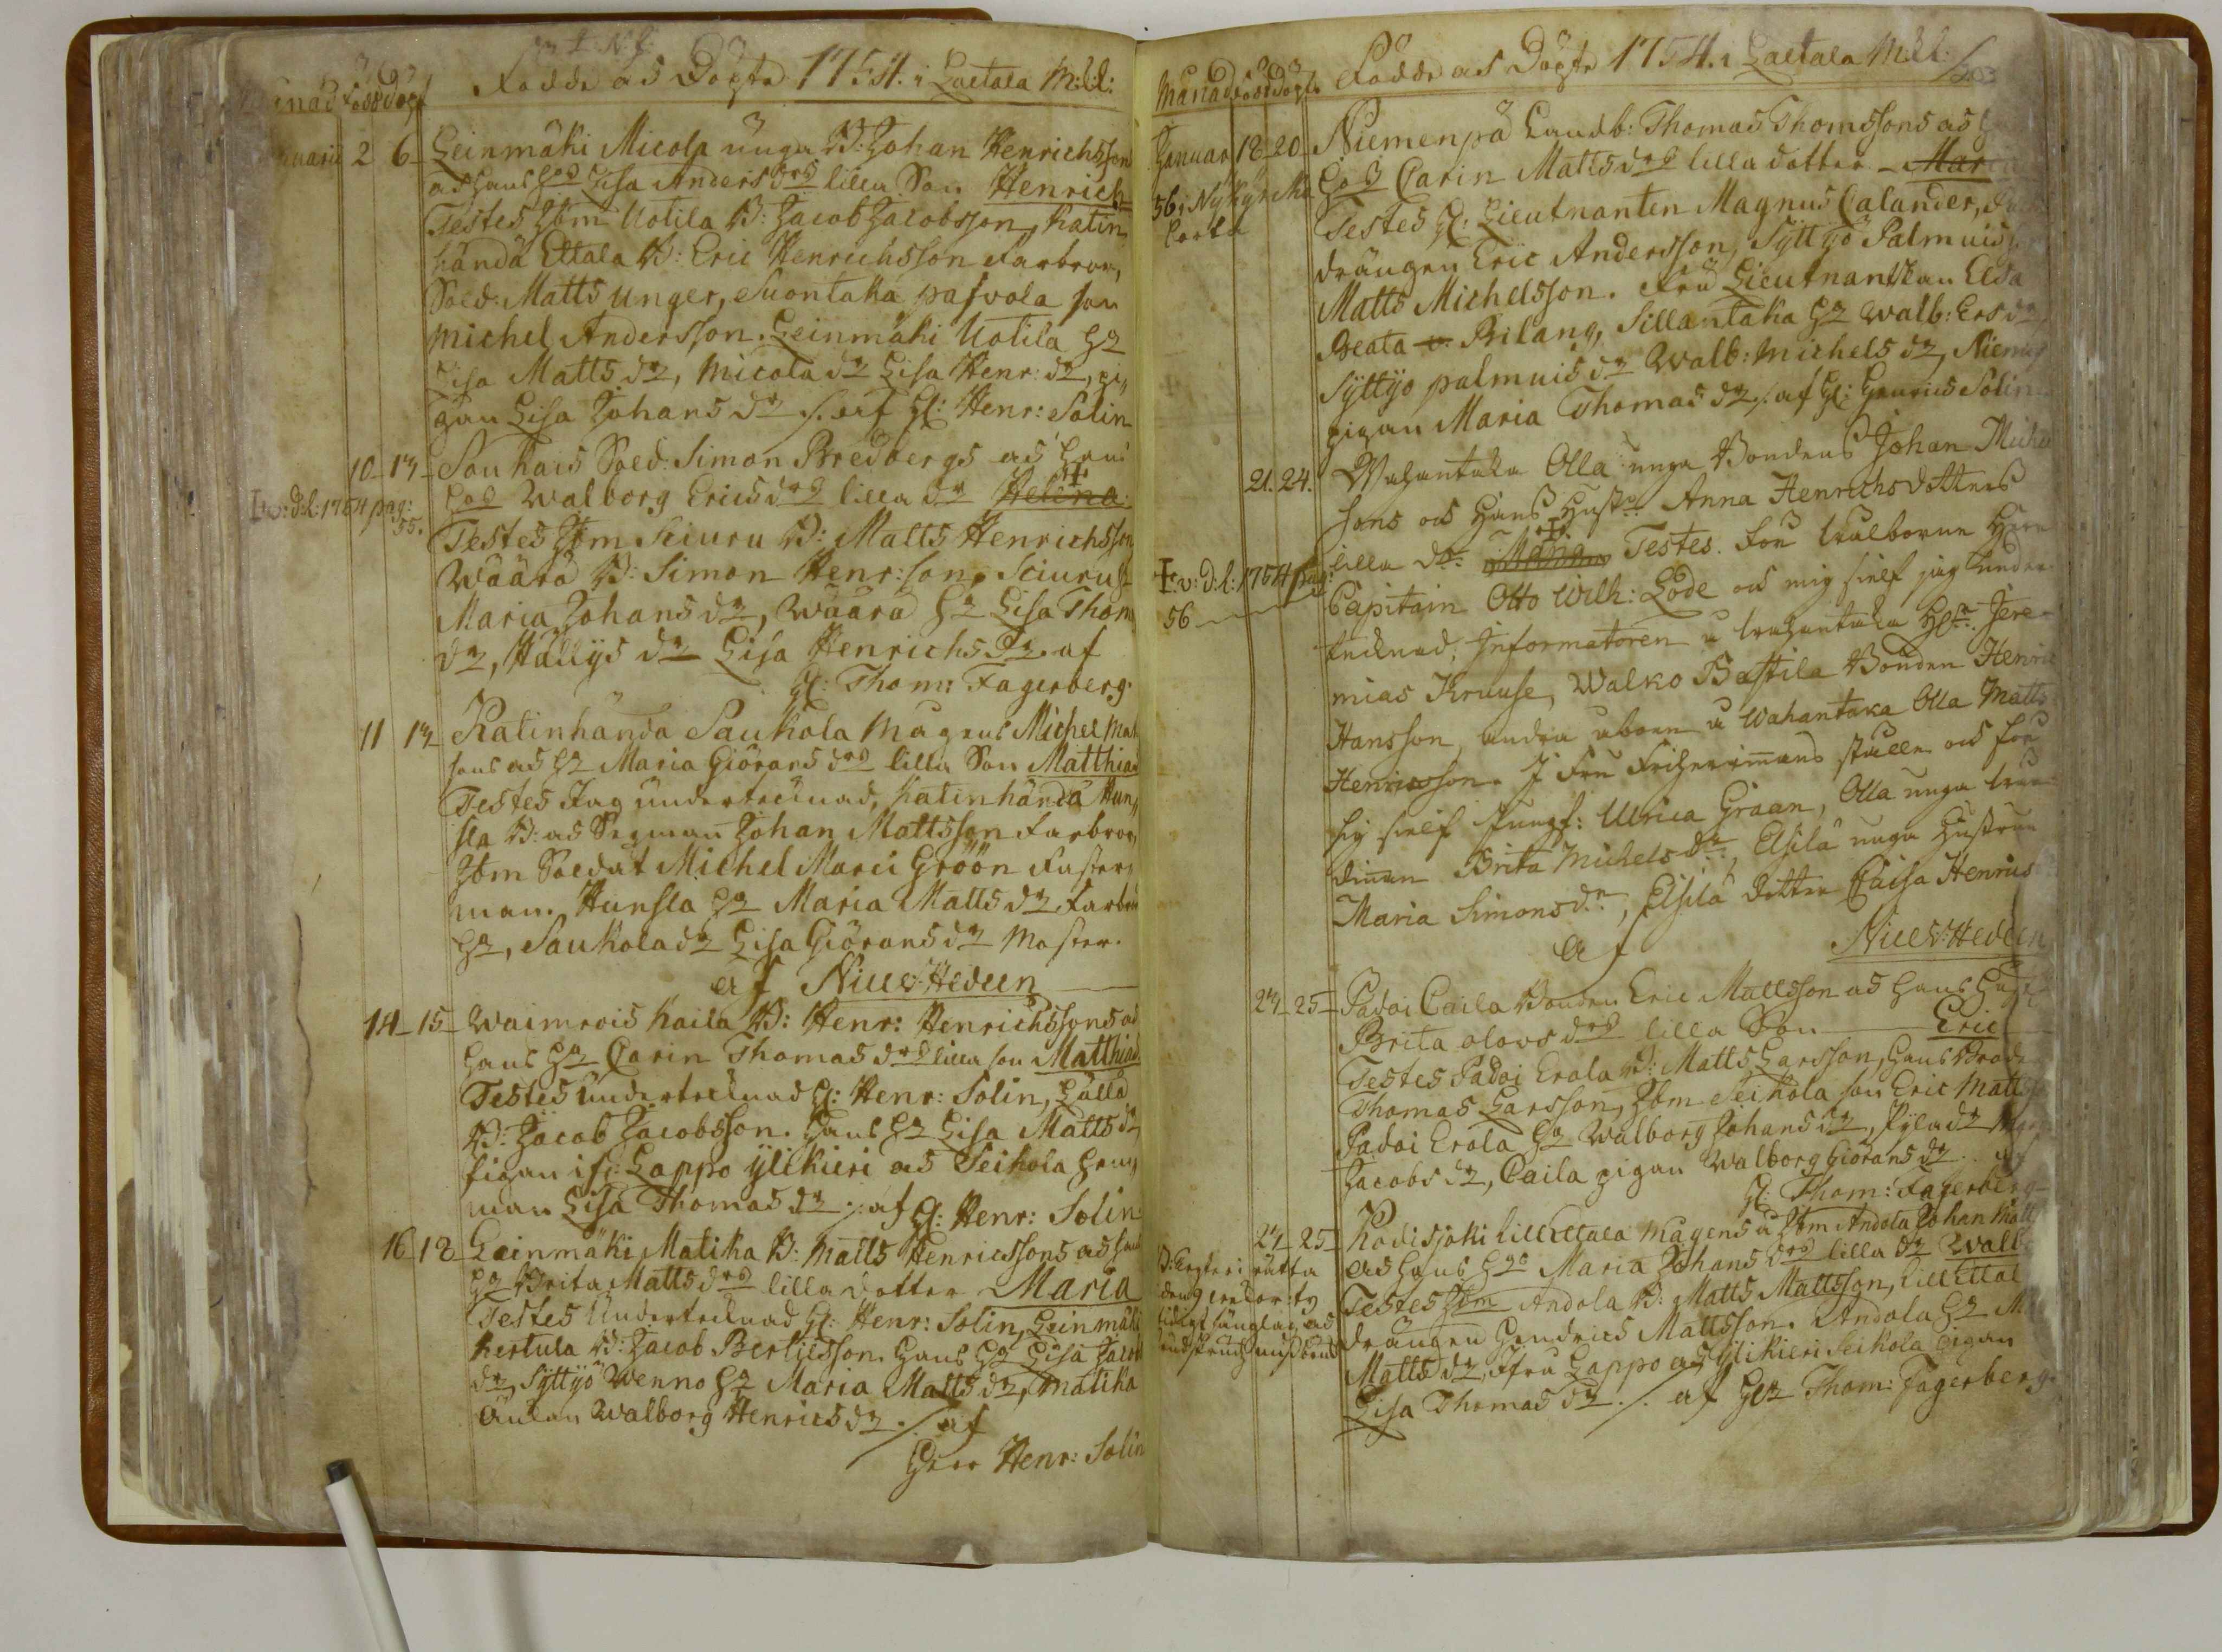 Födde och Döpte 1754. i Laitala M:kl:
Januarii 2 6 Leinmäki Micola unga B: Johan Henrichsson
och hans h:s Lisa Anders d:rs lilla Son Henrich
Testes Ibm Uotila B: Jacob Jacobsson, Katin
händä Ettala B: Eric Henrichsson farbror,
Sold: Matts Unger, Suontaka pasvola son
Michel Andersson. Leinmäki Uotila h:
Lisa Matts d:r, Micola d:r Lisa Henr: d:r, pi„
gan Lisa Johans d:r /. af H: Henr: Solin
10 13 Soukais Sold: Simon Bredbergs och hans
h:s Walborg Erics d:rs lilla d:r Helena
v: d: l: 1754 pag: 55.
Testes Ibm Sciuru B: Matts Henrichsson
Wäärä B: Simon Henr: son, Sciuru h:
Maria Johans d:r, Wäärä h: Lisa Thom
d:r, Hällys d:r Lisa Henrichs d:r. af
H: Thom: Fagerberg.
11 13 Katinhända Saukola Mågens Michel Mat
sons och h: Maria Giörans d:rs lilla Son Matthias
Testes Jag undertecknad, Katinhändä Hun„
sla B: och Sexman Johan Mattsson farbror,
Ibm Soldat Michel Marci Gröön faster„
man. Hunsla h: Maria Matts d:r farbr
h:, Saukola d:r Lisa Giörans d:r Moster.
af Nils Hedeen
14 15 Waimrois Kaila B: Henr: Henrichssons och
hans h: Carin Thomas d:rs lilla son Matthias
Testes Undertecknad H: Henr: Solin, Källä
B: Jacob Jacobsson. hans h: Lisa Matts d:r
pigan ifr: Lappo Ylikieri och Seikola
man Lisa Thomas d:r ./. af H: Henr: Solin
16 18 Leinmäki Matika B: Matts Henricssons och hans
h: Brita Matts d:rs lilla dotter Maria
Testes Undertecknad H: Henr: Solin, Leinmäki
Kertula B: Jacob Bertilsson. hans h: Lisa Jacob
d:r, Syttyö Wenno h: Maria Matts d:r, Matika
änkan Walborg Henrics d:r ./. af
Herr Henr: Solin
Månad Född Döpt Födde och Döpte 1754. i Laitala M:kl:
303
Januar 18 20 Niemenpä Landb: Thomas Thomssons och
h:s Carin Matts d:rs lilla dotter Maria
56 i Nykyr
Testes H: Lieutnanten Magnus Calander,
drängen Eric Andersson, Syttyö Palmuis
Matts Michelsson. Fru Lieutnantskan Elsa
Beata v. Bilang, Sillantaka h: Walb: Ers d:r
Syttyö palmuis d:r Walb: Michels d:r, Niemen
pigan Maria Thomas d:r ./. af H: Henrics Solin
21. 24. Wahantaka Olla unga Bondens Johan Michel
sons och hans hust:s Anna Henrichs dotters
lilla d:r Maria Testes. Herr
v: d: l: 1754 pag: 56
Capitain Otto Wilh: Lode och mig sielf jag under
tecknad, Informatoren å Wahantaka Herr Jere
mias Kruuse, Walko Bastila Bonden Henric
Hansson, andra åboen å Wahantaka Olla Matts
Henricsson. I Fru Friherrinnans ställe och för
sig sielf Jungf: Ulrica Graan, Olla unga
dinnan Brita Michels d:r, Elsilä unga hustrun
Maria Simons d:r, Elsilä dotter Caisa Henrics
af Nils Hedeen
23 25 Padoi Caila Bonden Eric Mattsson och hans hust
Brita Olovs d:rs lilla Son Eric
Testes Padoi Erola B: Matts Larsson, hans Broder
Thomas Larsson, Ibm Seikola son Eric Matts
Padoi Erola h: Walborg Johans d:r, Pyla d:r
Jacobs d:r, Caila pigan Walborg Giörans d:r . af
H: Thom: Fagerberg
23 25 Kodisjoki lill Ettala Mågens å Ibm Andola Johan Matt
och hans h:s Maria Johans d:rs lilla d:r Walb
Testes Ibm Andola B: Matts Mattsson, lill Ettal
drängen Hendrics Mattsson. Andola h:
Matts d:r, ifrån Lappo och Ylikieri Seikola pigan
Lisa Thomas d:r ./. af H:r Thom: Fagerberg.